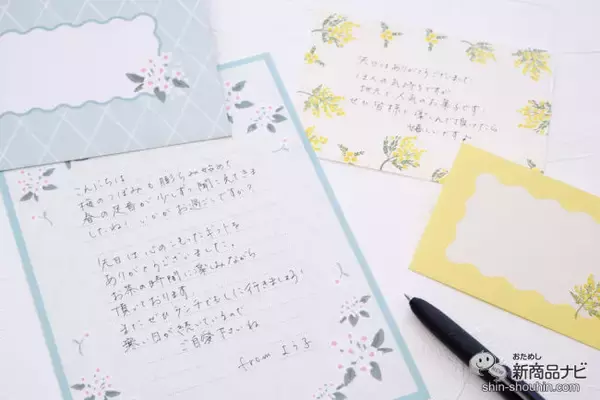 こんにちは
桜のつぼみも膨らみ始めて
春の足音が少しずつ聞こえてきま
したね! いかがお過ごしですか?
先日は心のこもったギフトを
ありがとうございました。
お茶の時間に楽しみながら
頂いております。
またぜひランチでもしに行きましょう!
寒い日が続いているので
ご自愛下さいね
from ようこ
先日はありがとうございました
ほんの気持ちですが
地元で人気のお菓子です。
ぜひ皆様で召し上がって頂けたら
嬉しいです
おためし
新商品ナビ
shin-shouhin.com